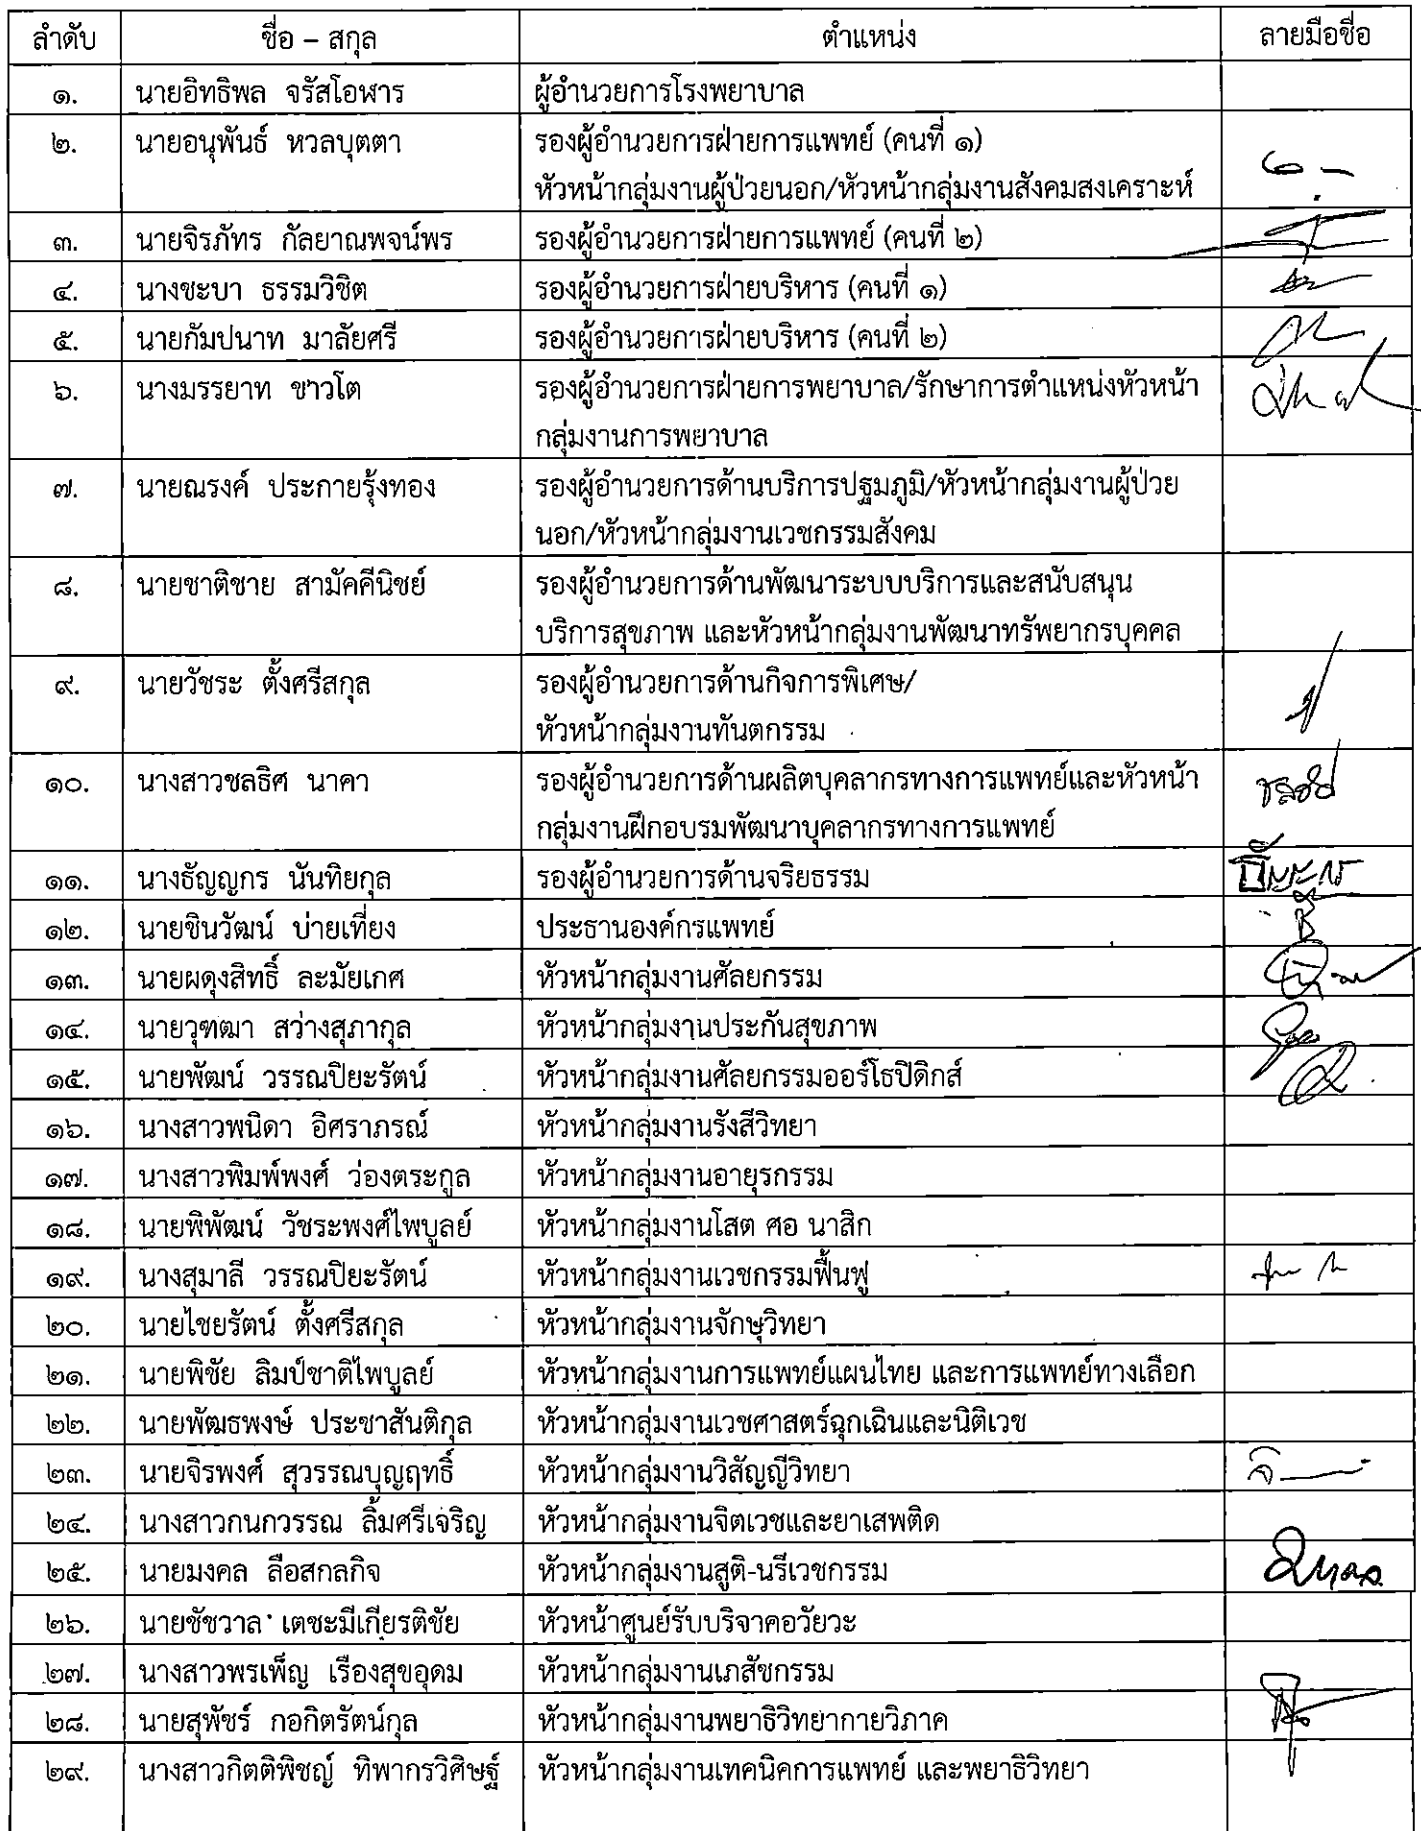 ลำดับ ชื่อ – สกุล ตำแหน่ง ลายมือชื่อ
๑. นายอิทธิพล จรัสโอฬาร ผู้อำนวยการโรงพยาบาล
๒. นายอนุพันธ์ หวลบุตตา รองผู้อำนวยการฝ่ายการแพทย์ (คนที่ ๑)
หัวหน้ากลุ่มงานผู้ป่วยนอก/หัวหน้ากลุ่มงานสังคมสงเคราะห์
๓. นายจิรภัทร กัลยาณพจน์พร รองผู้อำนวยการฝ่ายการแพทย์ (คนที่ ๒)
๔. นางชะบา ธรรมวิชิต รองผู้อำนวยการฝ่ายบริหาร (คนที่ ๑)
๕. นายกัมปนาท มาลัยศรี รองผู้อำนวยการฝ่ายบริหาร (คนที่ ๒)
๖. นางมรรยาท ขาวโต รองผู้อำนวยการฝ่ายการพยาบาล/รักษาการตำแหน่งหัวหน้า
กลุ่มงานการพยาบาล
๗. นายณรงค์ ประกายรุ้งทอง รองผู้อำนวยการด้านบริการปฐมภูมิ/หัวหน้ากลุ่มงานผู้ป่วย
นอก/หัวหน้ากลุ่มงานเวชกรรมสังคม
๘. นายชาติชาย สามัคคีนิชย์ รองผู้อำนวยการด้านพัฒนาระบบบริการและสนับสนุน
บริการสุขภาพ และหัวหน้ากลุ่มงานพัฒนาทรัพยากรบุคคล
๙. นายวัชระ ตั้งศรีสกุล รองผู้อำนวยการด้านกิจการพิเศษ/
หัวหน้ากลุ่มงานทันตกรรม
๑๐. นางสาวชลธิศ นาคา รองผู้อำนวยการด้านผลิตบุคลากรทางการแพทย์และหัวหน้า
กลุ่มงานฝึกอบรมพัฒนาบุคลากรทางการแพทย์
๑๑. นางธัญญกร นันทิยกุล รองผู้อำนวยการด้านจริยธรรม
๑๒. นายชินวัฒน์ บ่ายเที่ยง ประธานองค์กรแพทย์
๑๓. นายผดุงสิทธิ์ ละมัยเกศ หัวหน้ากลุ่มงานศัลยกรรม
๑๔. นายวุฑฒา สว่างสุภากุล หัวหน้ากลุ่มงานประกันสุขภาพ
๑๕. นายพัฒน์ วรรณปิยะรัตน์ หัวหน้ากลุ่มงานศัลยกรรมออร์โธปิดิกส์
๑๖. นางสาวพนิดา อิศราภรณ์ หัวหน้ากลุ่มงานรังสีวิทยา
๑๗. นางสาวพิมพ์พงศ์ ว่องตระกูล หัวหน้ากลุ่มงานอายุรกรรม
๑๘. นายพิพัฒน์ วัชระพงศ์ไพบูลย์ หัวหน้ากลุ่มงานโสต ศอ นาสิก
๑๙. นางสุมาลี วรรณปิยะรัตน์ หัวหน้ากลุ่มงานเวชกรรมฟื้นฟู
๒๐. นายไชยรัตน์ ตั้งศรีสกุล หัวหน้ากลุ่มงานจักษุวิทยา
๒๑. นายพิชัย ลิมป์ชาติไพบูลย์ หัวหน้ากลุ่มงานการแพทย์แผนไทย และการแพทย์ทางเลือก
๒๒. นายพัฒธพงษ์ ประชาสันติกุล หัวหน้ากลุ่มงานเวชศาสตร์ฉุกเฉินและนิติเวช
๒๓. นายจิรพงศ์ สุวรรณบุญฤทธิ์ หัวหน้ากลุ่มงานวิสัญญีวิทยา
๒๔. นางสาวกนกวรรณ ลิ้มศรีเจริญ หัวหน้ากลุ่มงานจิตเวชและยาเสพติด
๒๕. นายมงคล ลือสกลกิจ หัวหน้ากลุ่มงานสูติ-นรีเวชกรรม
๒๖. นายชัชวาล เตชะมีเกียรติชัย หัวหน้าศูนย์รับบริจาคอวัยวะ
๒๗. นางสาวพรเพ็ญ เรืองสุขอุดม หัวหน้ากลุ่มงานเภสัชกรรม
๒๘. นายสุพัชร์ กอกิตรัตน์กุล หัวหน้ากลุ่มงานพยาธิวิทยากายวิภาค
๒๙. นางสาวกิตติพิชญ์ ทิพากรวิศิษฐ์ หัวหน้ากลุ่มงานเทคนิคการแพทย์ และพยาธิวิทยา